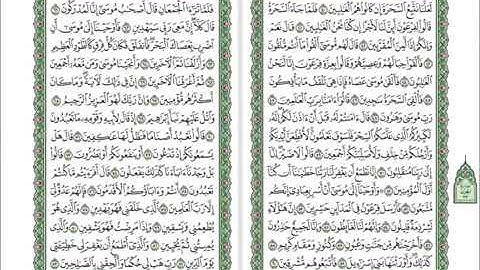 لعلنا نتبع السحرة إن كانوا هم الغلبين ۝ فلما جاء السحرة
قالوا لفرعون أئن لنا لأجرا إن كنا نحن الغلبين ۝ قال نعم
وإنكم إذا لمن المقربين ۝ قال لهم موسى ألقوا ما أنتم ملقون ۝
فألقوا حبالهم وعصيهم وقالوا بعزة فرعون إنا لنحن
الغلبون ۝ فألقى موسى عصاه فإذا هي تلقف ما يأفكون ۝
فألقي السحرة سجدين ۝ قالوا ءامنا برب العلمين ۝
رب موسى وهرون ۝ قال ءامنتم له قبل أن ءاذن لكم إنه
لكبيركم الذي علمكم السحر فلسوف تعلمون لأقطعن أيديكم
وأرجلكم من خلف ولأصلبنكم أجمعين ۝ قالوا لا ضير إنا
إلى ربنا منقلبون ۝ إنا نطمع أن يغفر لنا ربنا خطينا أن كنا
أول المؤمنين ۝ وأوحينا إلى موسى أن أسر بعبادي إنكم
متبعون ۝ فأرسل فرعون في المدائن حشرين ۝ إن هؤلاء
لشرذمة قليلون ۝ وإنهم لنا لغائظون ۝ وإنا لجميع حذرون ۝
فأخرجنهم من جنت وعيون ۝ وكنوز ومقام كريم ۝
كذلك وأورثنها بني إسرءيل ۝ فأتبعوهم مشرقين ۝
فلما ترءا الجمعان قال أصحب موسى إنا لمدركون ۝
قال كلا إن معي ربي سيهدين ۝ فأوحينا إلى موسى أن
اضرب بعصاك البحر فانفلق فكان كل فرق كالطود العظيم ۝
وأزلفنا ثم الءاخرين ۝ وأنجينا موسى ومن معه أجمعين
۝ ثم أغرقنا الءاخرين ۝ إن في ذلك لءاية وما كان
أكثرهم مؤمنين ۝ وإن ربك لهو العزيز الرحيم ۝
واتل عليهم نبأ إبرهيم ۝ إذ قال لأبيه وقومه ما تعبدون
۝ قالوا نعبد أصناما فنظل لها عكفين ۝ قال هل
يسمعونكم إذ تدعون ۝ أو ينفعونكم أو يضرون ۝
قالوا بل وجدنا ءاباءنا كذلك يفعلون ۝ قال أفرءيتم ما كنتم
تعبدون ۝ أنتم وءاباؤكم الأقدمون ۝ فإنهم عدو لي
إلا رب العلمين ۝ الذي خلقني فهو يهدين ۝ والذي هو
يطعمني ويسقين ۝ وإذا مرضت فهو يشفين ۝ والذي
يميتني ثم يحيين ۝ والذي أطمع أن يغفر لي خطيئتي
يوم الدين ۝ رب هب لي حكما وألحقني بالصلحين ۝